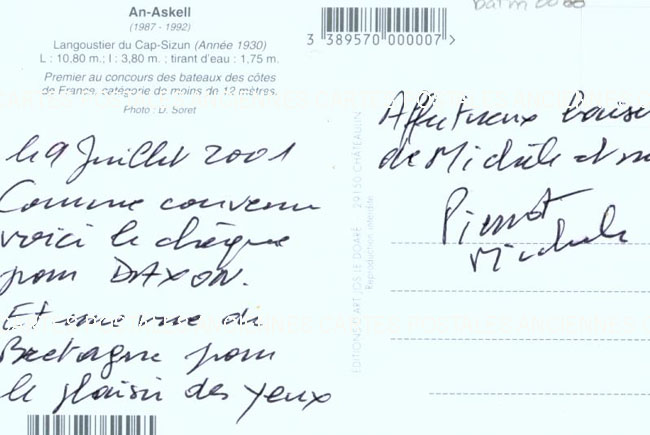 An-Askell
(1987 - 1992)
Langoustier du Cap-Sizun (Année 1930)
L : 10,80 m. ; l : 3,80 m. ; tirant d'eau : 1,75 m.
Premier au concours des bateaux des côtes
de France, catégorie de moins de 12 mètres.
Photo : D. Soret
3 389570 000007 >
le 9 Juillet 2001
Comme convenu
voici le chèque
pour DAXON.
Et une vue de
Bretagne pour
le plaisir des yeux
EDITIONS D'ART JOS LE DOARÉ - 29150 CHÂTEAULIN
Reproduction interdite
Affectueux
de Michèle et
Pierrot
Michèle